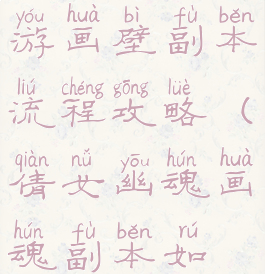 yóu huà bì fù běn
游画壁副本
liú chéng gōng lüè
流程攻略（
qiàn nǚ yōu hún huà
倩女幽魂画
hún fù běn rú
魂副本如